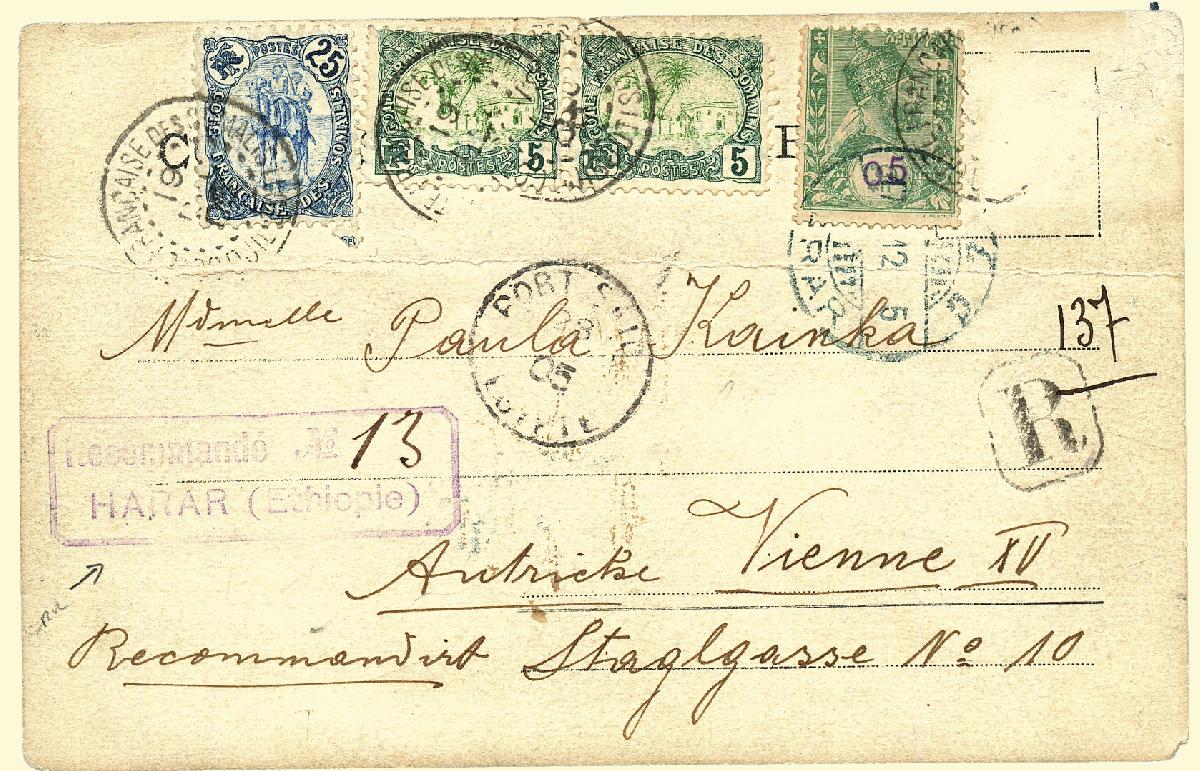 POSTES 25
CÔTE FRANÇAISE DES SOMALIS
CÔTE FRANÇAISE DES SOMALIS
POSTES 5
CÔTE FRANÇAISE DES SOMALIS
POSTES 5
05
C
FRANÇAISE DES SOMALIS
12 5
PORT SAID
05
Mdmelle Paula Kainka
137
R
Recommandé No 13
HARAR (Ethiopie)
Autriche Vienne XV
Recommandirt Staglgasse No 10